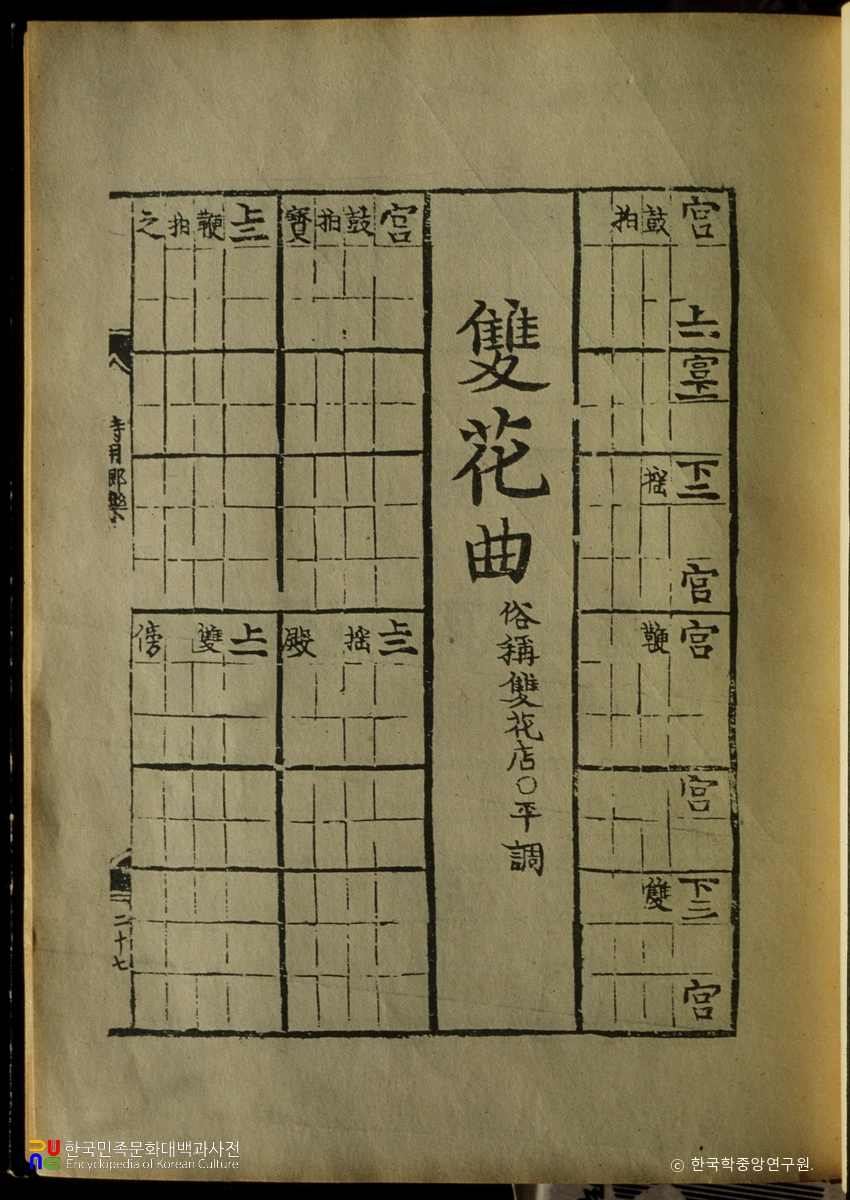 宮 上一 宮 下二 宮 宮 宮 下二 宮
鼓 搖 鞭 雙
拍
雙花曲 俗稱雙花店○平調
宮 上二
鼓 搖
拍
寶 殿
上二 上一
鞭 雙
拍
之 傍
二十七
한국민족문화대백과사전
Encyclopedia of Korean Culture
ⓒ 한국학중앙연구원.